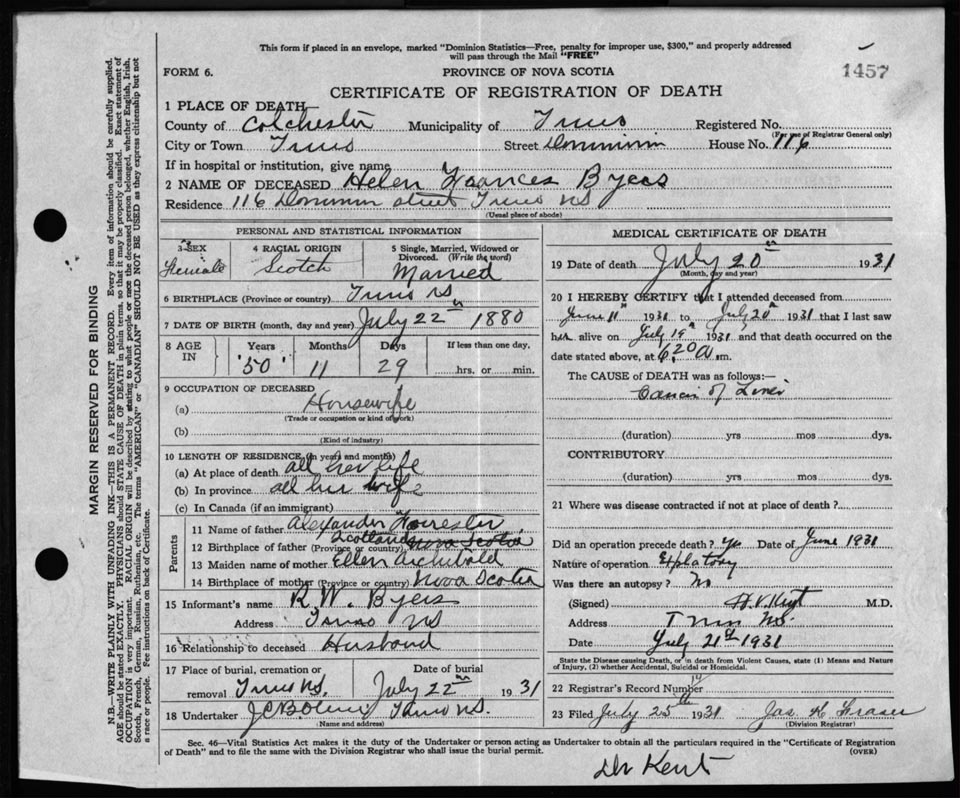 This form if placed in an envelope, marked "Dominion Statistics—Free, penalty for improper use, $300," and properly addressed
will pass through the Mail "FREE"
FORM 6.
PROVINCE OF NOVA SCOTIA
1457
CERTIFICATE OF REGISTRATION OF DEATH
1 PLACE OF DEATH
County of Colchester Municipality of Truro Registered No.
(For use of Registrar General only)
City or Town Truro Street Dominion House No. 116
If in hospital or institution, give name
2 NAME OF DECEASED Helen Frances Byers
Residence 116 Dominion street Truro NS
(Usual place of abode)
PERSONAL AND STATISTICAL INFORMATION
3 SEX
Female
4 RACIAL ORIGIN
Scotch
5 Single, Married, Widowed or
Divorced. (Write the word)
Married
6 BIRTHPLACE (Province or country) Truro NS
7 DATE OF BIRTH (month, day and year) July 22nd 1880
8 AGE
IN
Years Months Days If less than one day.
50 11 29 hrs. or min.
9 OCCUPATION OF DECEASED
(a) Housewife
(Trade or occupation or kind of work)
(b)
(Kind of industry)
10 LENGTH OF RESIDENCE (in years and months)
(a) At place of death all her life
(b) In province all her life
(c) In Canada (if an immigrant)
Parents
11 Name of father Alexander Forrester
12 Birthplace of father (Province or country) Scotland Nova Scotia
13 Maiden name of mother Ellen Archibald
14 Birthplace of mother (Province or country) Nova Scotia
15 Informant's name R. W. Byers
Address Truro NS
16 Relationship to deceased Husband
17 Place of burial, cremation or Date of burial
removal Truro NS. July 22nd 1931
18 Undertaker Truro NS.
(Name and address)
MEDICAL CERTIFICATE OF DEATH
19 Date of death July 20th 1931
(Month, day and year)
20 I HEREBY CERTIFY that I attended deceased from
June 11th 1931 to July 20th 1931 that I last saw
her alive on July 19th 1931 and that death occurred on the
date stated above, at 6.20 a m.
The CAUSE of DEATH was as follows:—
Cancer of Liver
(duration) yrs mos dys.
CONTRIBUTORY
(duration) yrs mos dys.
21 Where was disease contracted if not at place of death?
Did an operation precede death? Yes Date of June 1931
Nature of operation Explatory
Was there an autopsy? No
(Signed) H. V. Kent M.D.
Address Truro N.S.
Date July 21st 1931
State the Disease causing Death, or in death from Violent Causes, state (1) Means and Nature
of Injury, (2) whether Accidental, Suicidal or Homicidal.
22 Registrar's Record Number
23 Filed July 25th 1931 Jas H Fraser
(Division Registrar)
Sec. 46—Vital Statistics Act makes it the duty of the Undertaker or person acting as Undertaker to obtain all the particulars required in the "Certificate of Registration
of Death" and to file the same with the Division Registrar who shall issue the burial permit. (OVER)
Dr Kent
MARGIN RESERVED FOR BINDING
N.B.—WRITE PLAINLY WITH UNFADING INK—THIS IS A PERMANENT RECORD. Every item of information should be carefully supplied.
AGE should be stated EXACTLY. PHYSICIANS should state CAUSE OF DEATH in plain terms, so that it may be properly classified. Exact statement of
OCCUPATION is very important. RACIAL ORIGIN will be described by stating to what people or race the deceased person belonged, whether English, Irish,
Scotch, French, German, Russian, Ruthenian, etc. The terms "AMERICAN" or "CANADIAN" SHOULD NOT BE USED as they express citizenship but not
a race or people. Fee instructions on back of Certificate.